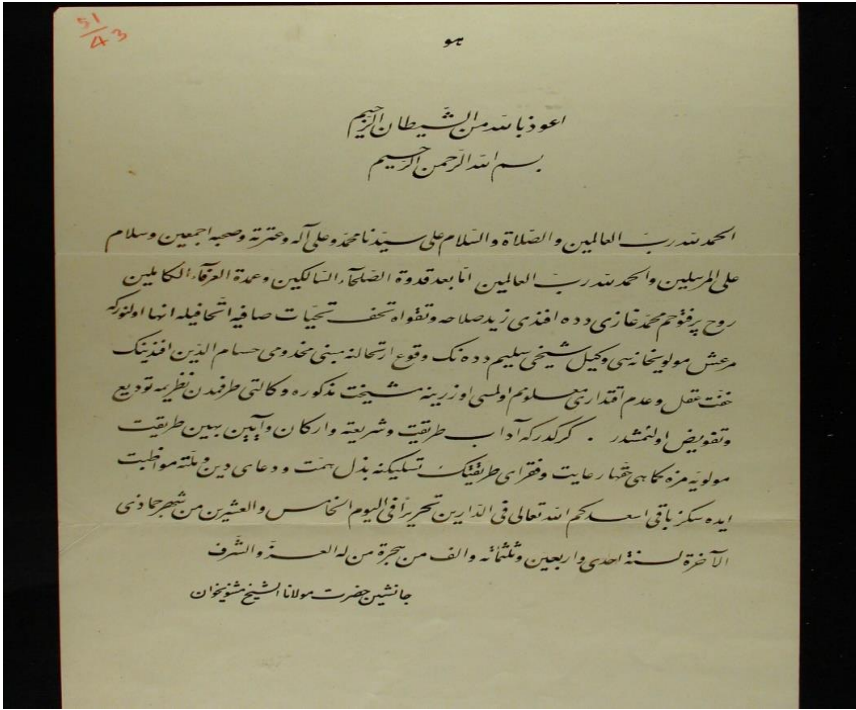 51/43
هو
اعوذ بالله من الشّیطان الرّجیم
بسم الله الرّحمن الرّحیم
الحمد لله ربّ العالمین والصّلاة والسّلام علی سیّدنا محمّد وعلی آله وعترته وصحبه اجمعین وسلام
علی المرسلین والحمد لله ربّ العالمین امّا بعد قدوة الصّلحآء السّالکین وعمدة العرفآء الکاملین
روح پرفتوحم محمّد غازی دده افندی زید صلاحه وتقواه تحف تحیّات صافیه اتحافیله انها اولنورکه
مرعش مولویخانه‌سی وکیل شیخی سلیم دده‌نک وقوع ارتحالنه مبنی مخدومی حسام الدّین افندینک
خفّت عقل وعدم اقتداری معلوم اولمسی اوزرینه مشیخت مذکوره وکالتی طرفمدن نظریمه تودیع
وتفویض اولنمشدر . کرکدرکه آداب طریقت وشریعته وارکان وآیین بهین طریقت
مولویه‌مزه کماهی حقّها رعایت وفقرای طریقتک تسلیکنه بذل همّت ودعای دین وملّته مواظبت
ایده‌سکز باقی اسعدکم الله تعالی فی الدّارین تحریراً فی الیوم الخامس والعشرین من شهر جماذی
الآخرة لسنة احدی واربعین وثلثمائه والف من هجرة من له العزّ والشّرف
جانشین حضرت مولانا الشیخ مثنویخوان